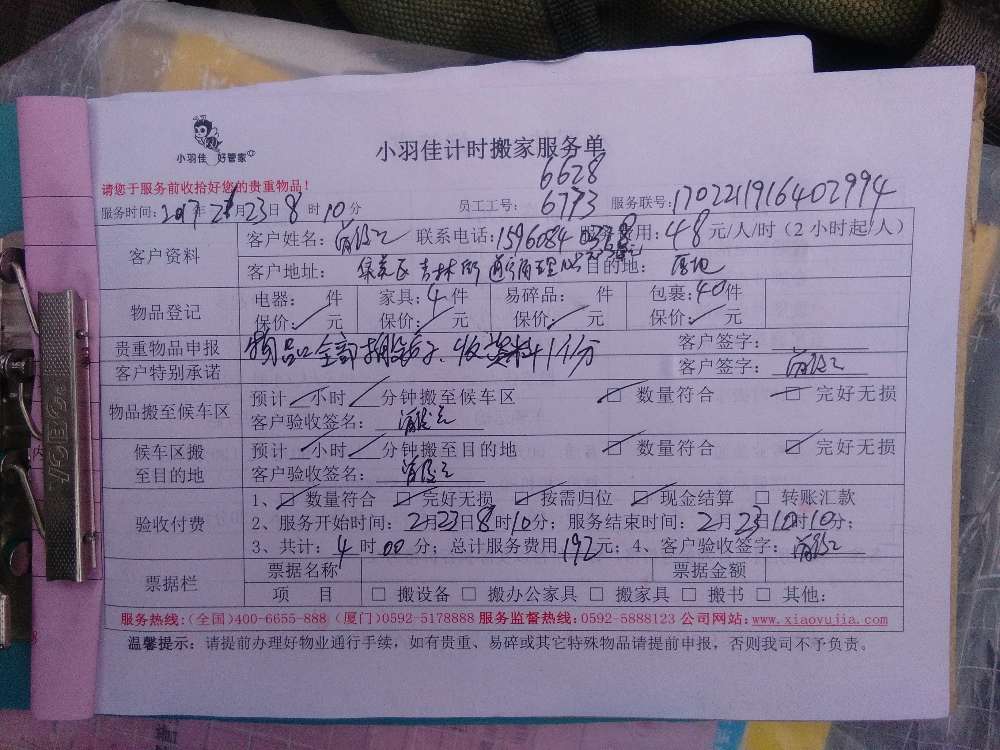 小羽佳 好管家
小羽佳计时搬家服务单
6628
请您于服务前收拾好您的贵重物品！
服务时间：2017年2月23日8时10分 员工工号：6793 服务联号：170221916402994
客户资料
客户姓名： 联系电话：1596084 费用：48元/人/时（2小时起/人）
客户地址： 吉林 目的地：
物品登记
电器： 件 家具：4件 易碎品： 件 包裹：40件
保价： 元 保价： 元 保价： 元 保价： 元
贵重物品申报 物品全部 客户签字：
客户特别承诺 收资料1份 客户签字：
物品搬至候车区
预计 小时 分钟搬至候车区 数量符合 完好无损
客户验收签名：
候车区搬至目的地
预计 小时 分钟搬至目的地 数量符合 完好无损
客户验收签名：
验收付费
1、□数量符合 □完好无损 □按需归位 □现金结算 □转账汇款
2、服务开始时间：2月23日8时10分；服务结束时间：2月23日10时10分；
3、共计：4时00分；总计服务费用192元；4、客户验收签字：
票据栏
票据名称 票据金额
项 目 □搬设备 □搬办公家具 □搬家具 □搬书 □其他：
服务热线：(全国)400-6655-888 (厦门)0592-5178888 服务监督热线：0592-5888123 公司网站：www.xiaoyujia.com
温馨提示：请提前办理好物业通行手续，如有贵重、易碎或其它特殊物品请提前申报，否则我司不予负责。